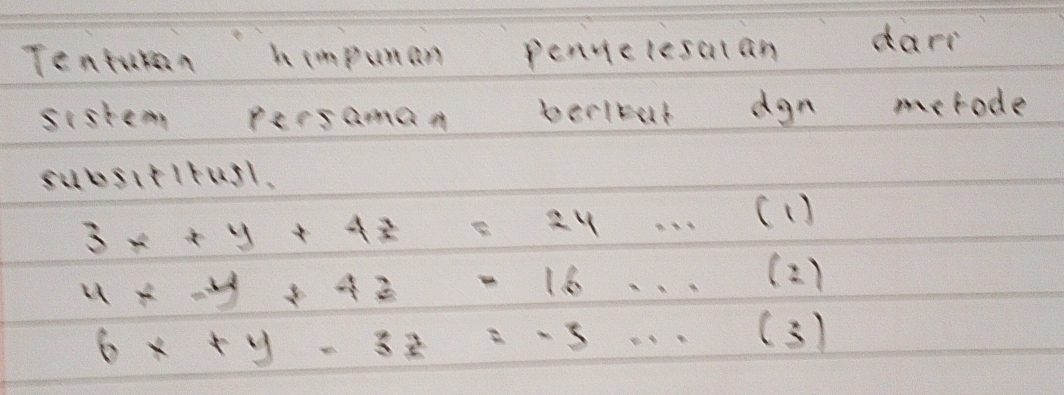 Tentukan himpunan penyelesaian dari
sistem persaman berikut dgn metode
subsititusi.
3x + y + 4z = 24 ... (1)
4x - y + 4z = 16 ... (2)
6x + y - 3z = -3 ... (3)